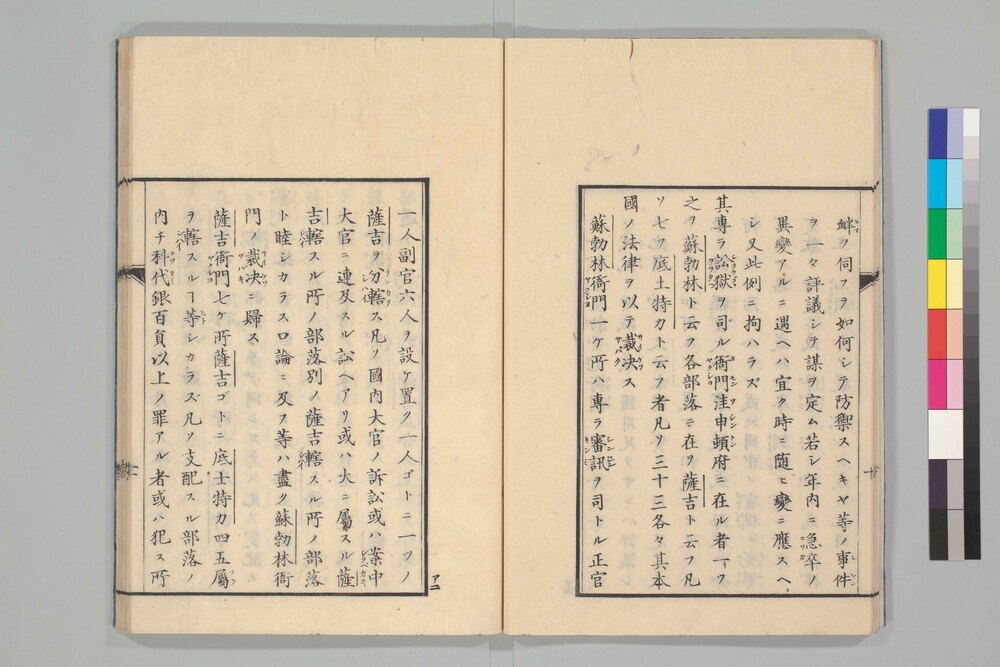 衅ヲ伺フヲ如何シテ防禦スヘキヤ等ノ事件
ヲ一々評議シテ謀ヲ定ム若シ年内ニ急卒ノ
異變アルニ遇ヘハ宜ク時ニ随ヒ變ニ應スヘ
シ又此例ニ拘ハラズ
其專ラ訟獄ヲ司ル衙門洼申頓府ニ在ル者一ヲ
之ヲ蘇勃林ト云フ各部落ニ在ヲ薩吉ト云フ凡
ソ七ツ底土特カト云者凡ソ三十三各々其本
國ノ法律ヲ以テ裁决ス
蘇勃林衙門一ケ所ハ專ラ審訊ヲ司トル正官
一人副官六人ヲ設ケ置ク一人ゴトニ一ツノ
薩吉ヲ分轄ス凡ソ國内大官ノ訴訟或ハ案中
大官ニ連及スル訟ヘアリ或ハ大ニ屬スル薩
吉轄スル所ノ部落別ノ薩吉轄スル所ノ部落
ト睦シカラス口論ニ及フ等ハ盡ク蘇勃林衙
門ノ裁决ニ歸ス
薩吉衙門七ケ所薩吉ゴトニ底土特カ四五屬
ヲ轄スルヿ等シカラズ凡ソ支配スル部落ノ
内チ科代銀百員以上ノ罪アル者或ハ犯ス所
アニ